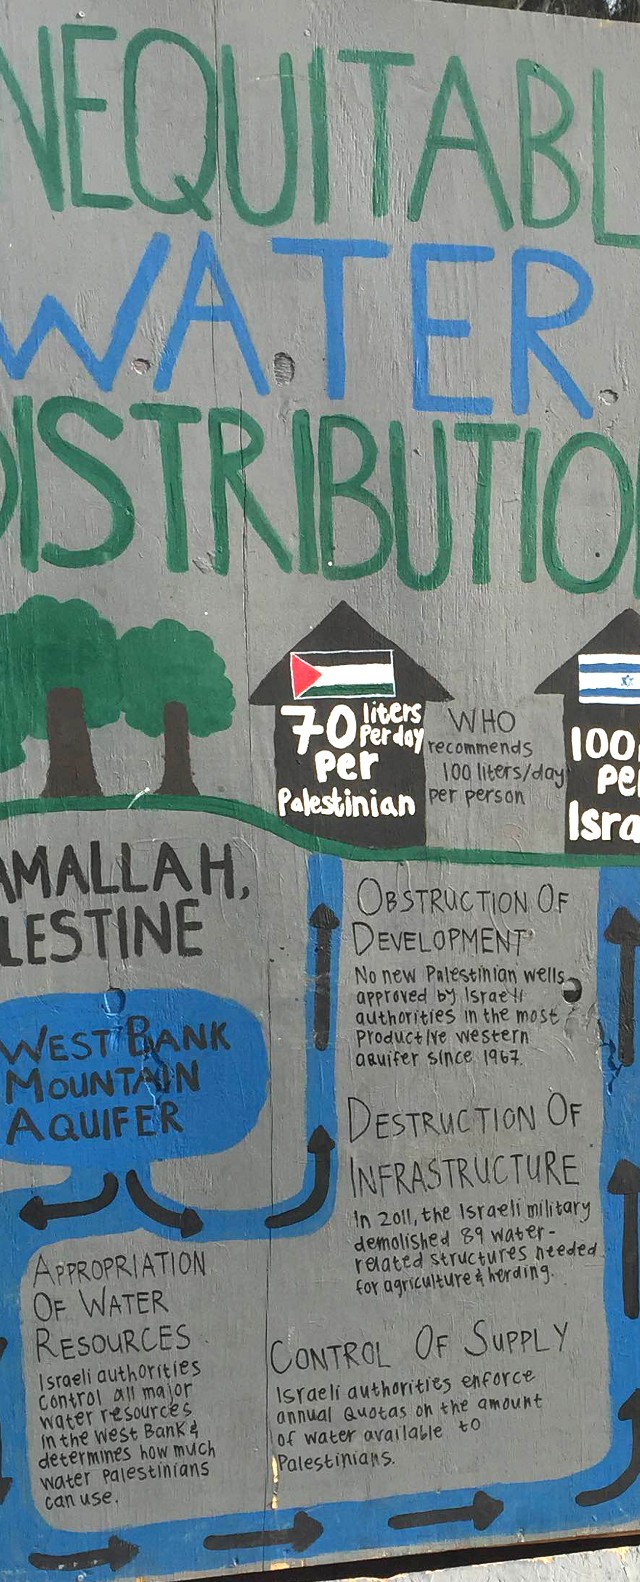 NEQUITABL
WATER
DISTRIBUTION
70 liters
per day
per
Palestinian
WHO
recommends
100 liters/day
per person
100
pe
Isra
AMALLAH,
LESTINE
WEST BANK
MOUNTAIN
AQUIFER
OBSTRUCTION OF
DEVELOPMENT
No new Palestinian wells
approved by Israeli
authorities in the most
productive western
aquifer since 1967.
DESTRUCTION OF
INFRASTRUCTURE
In 2011, the Israeli military
demolished 89 water-
related structures needed
for agriculture & herding.
APPROPRIATION
OF WATER
RESOURCES
Israeli authorities
control all major
water resources
in the West Bank &
determines how much
water Palestinians
can use.
CONTROL OF SUPPLY
Israeli authorities enforce
annual quotas on the amount
of water available to
Palestinians.